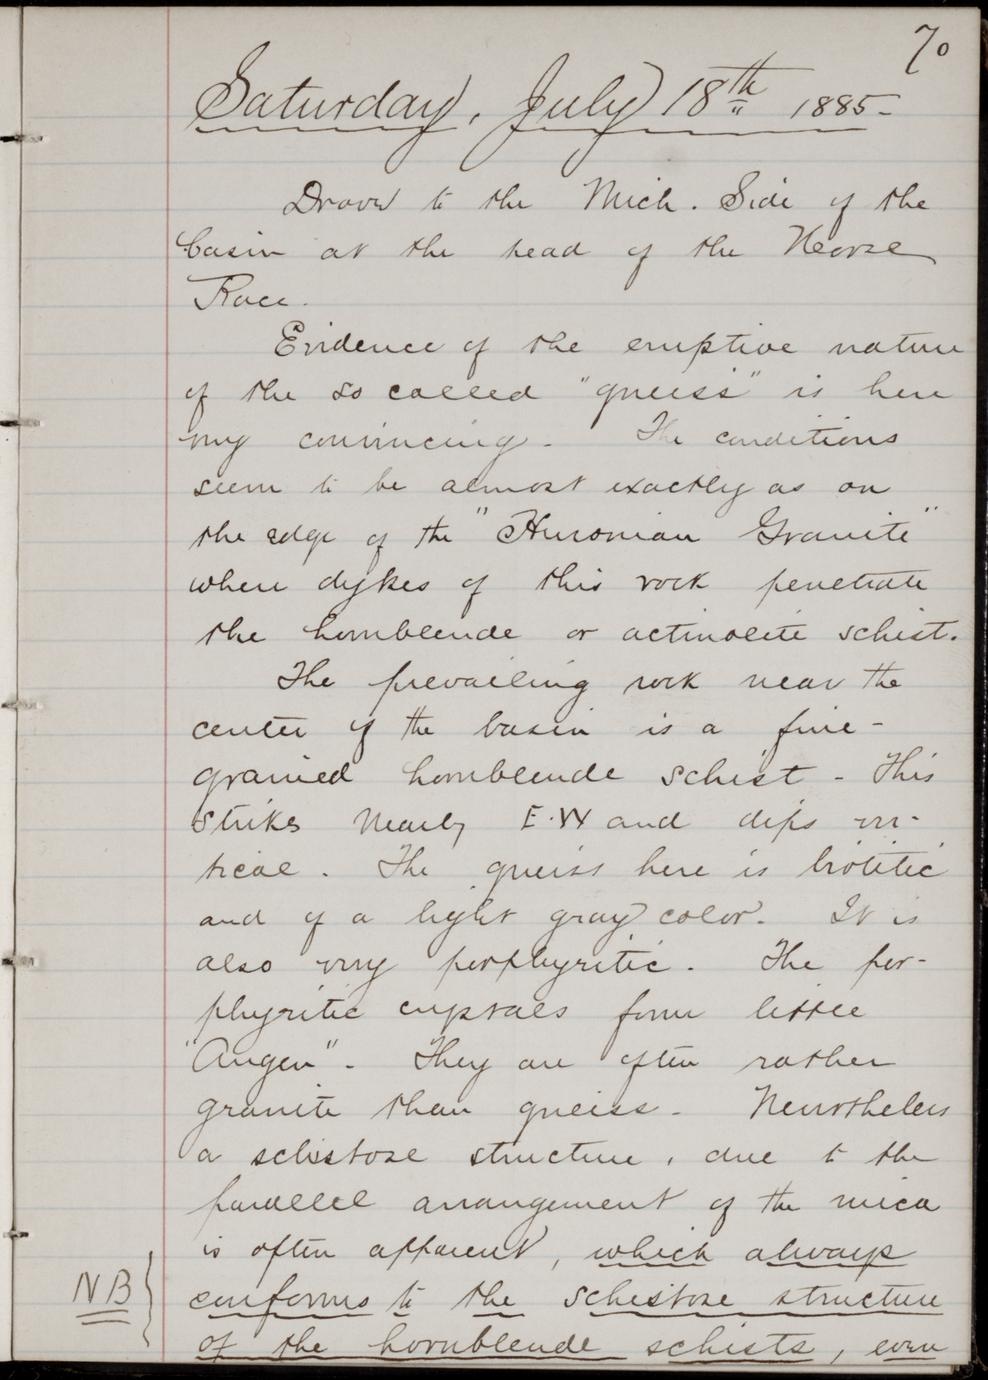 70
Saturday, July 18th 1885-
Drove to the Mich. Side of the
basin at the head of the Horse
Race.
Evidence of the eruptive nature
of the so called "gneiss" is here
very convincing - The conditions
seem to be almost exactly as on
the edge of the "Huronian Granite"
where dykes of this rock penetrate
the hornblende or actinolite schist.
The prevailing rock near the
center of the basin is a fine-
grained hornblende schist - This
strikes nearly E.W and dips ver-
tical. The gneiss here is biotitic
and of a light gray color. It is
also very porphyritic. The por-
phyritic crystals form little
"Augen" - They are often rather
granite than gneiss - Nevertheless
a schistose structure, due to the
parallel arrangement of the mica
is often apparent, which always
NB conforms to the schistose structure
of the hornblende schists, even